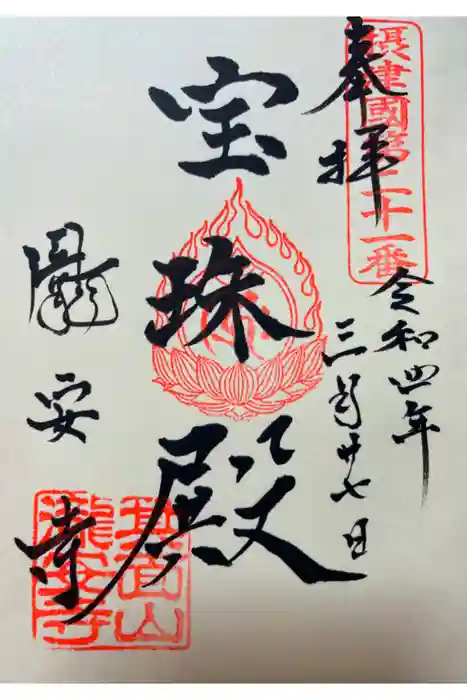 摂津國第二十一番
奉拝
令和四年
三月廿七日
宝珠殿
瀧安寺
箕面山
瀧安寺